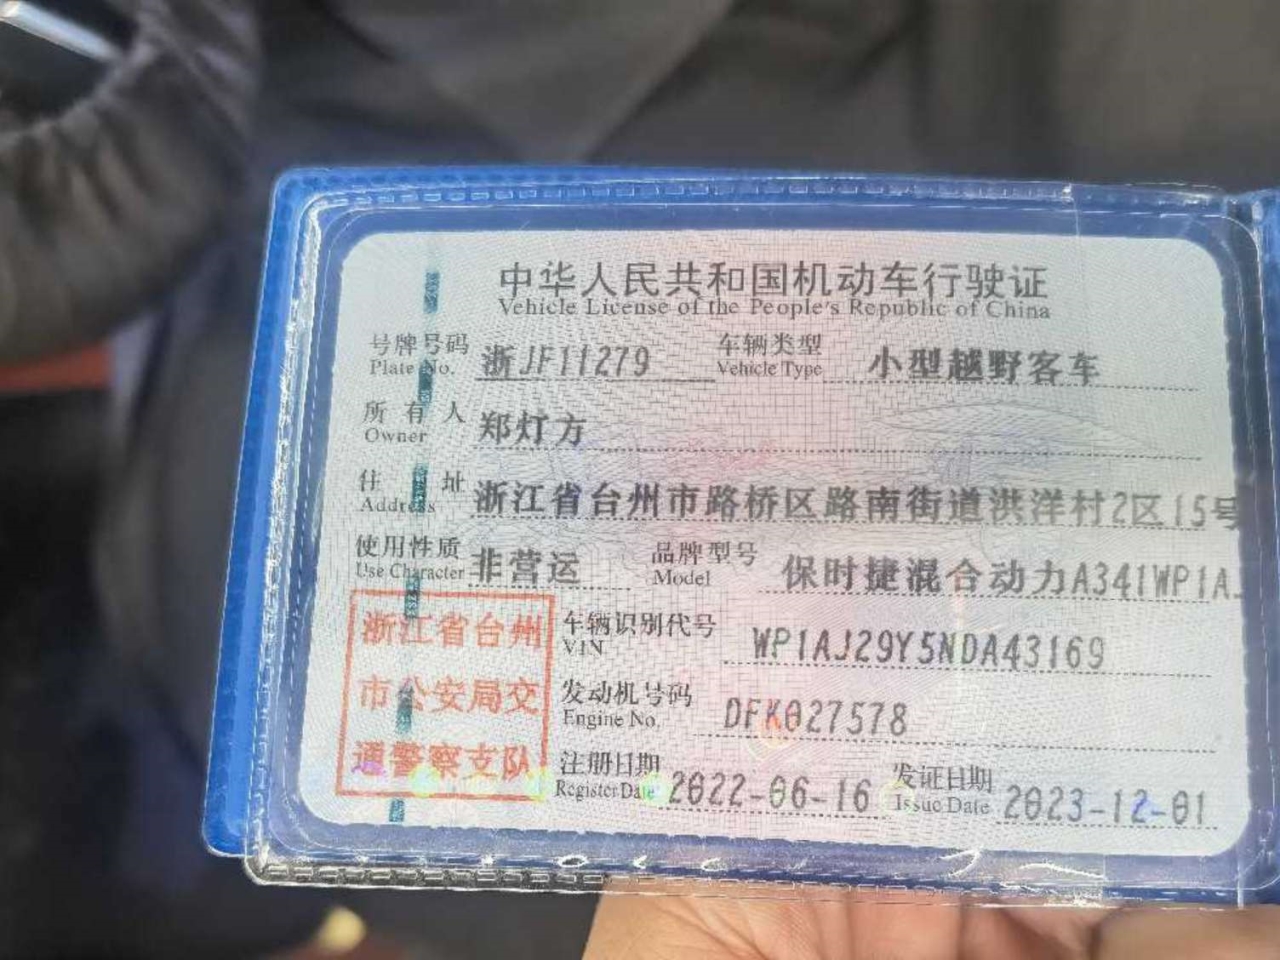 中华人民共和国机动车行驶证
Vehicle License of the People's Republic of China
号牌号码 浙JF11279 车辆类型 小型越野客车
Plate No. Vehicle Type
所有人 郑灯方
Owner
住址 浙江省台州市路桥区路南街道洪洋村2区15号
Address
使用性质 非营运 品牌型号 保时捷混合动力A341WP1A
Use Character Model
浙江省台州
市公安局交
通警察支队
车辆识别代号 WP1AJ29Y5NDA43169
VIN
发动机号码 DFK027578
Engine No.
注册日期 2022-06-16 发证日期 2023-12-01
Register Date Issue Date